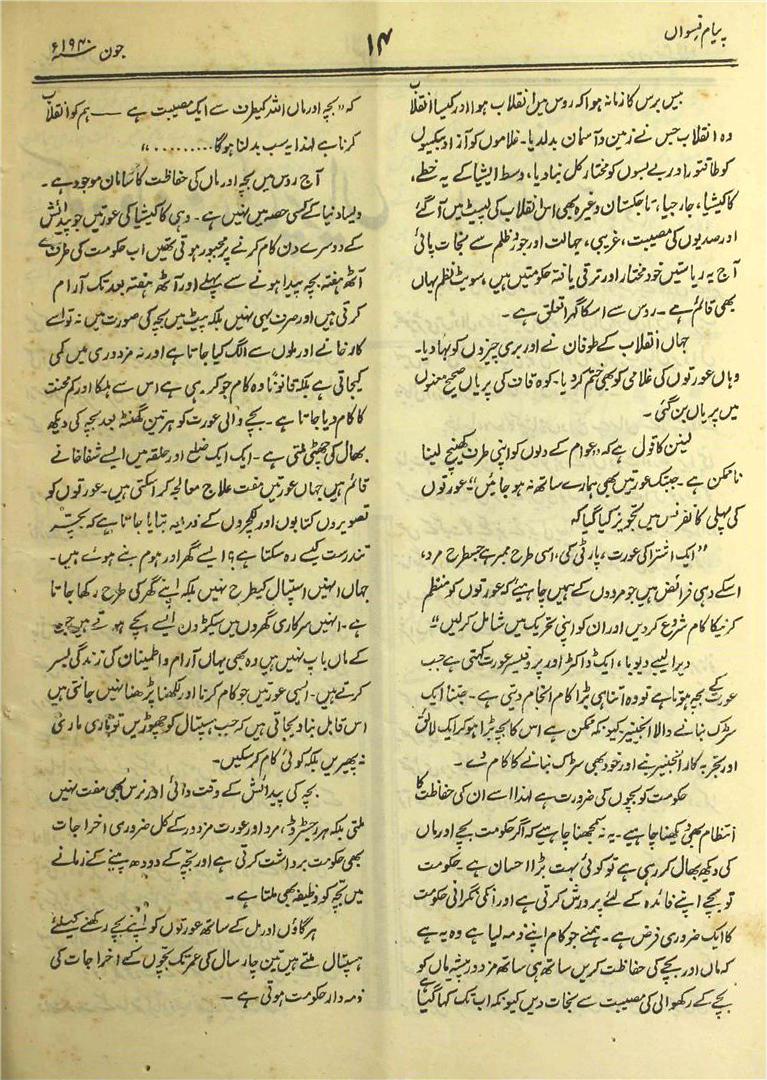 پیام نسواں
۱۴
جون سنہ ۱۹۴۰ء
بیس برس کا زمانہ ہوا کہ روس میں انقلاب ہوا اور کیسا انقلاب
وہ انقلاب جس نے زمین و آسمان بدلدیا۔ غلاموں کو آزاد بیکسوں
کو طاقتور اور بے بسوں کو مختار کل بنا دیا، وسط ایشیا کے یہ خطے،
کاکیشیا، جارجیا، تاجکستان وغیرہ بھی اس انقلاب کی لپیٹ میں آگئے
اور صدیوں کی مصیبت، غریبی، جہالت اور جور و ظلم سے نجات پائی
آج یہ ریاستیں خود مختار اور ترقی یافتہ حکومتیں ہیں، سویٹ نظم یہاں
بھی قائم ہے۔ روس سے اسکا گہرا تعلق ہے۔
جہاں انقلاب کے طوفان نے اور بری چیزوں کو بہا دیا۔
وہاں عورتوں کی غلامی کو بھی ختم کر دیا۔ کوہ قاف کی پریاں صحیح معنوں
میں پریاں بن گئی۔
لینن کا قول ہے کہ "عوام کے دلوں کو اپنی طرف کھینچ لینا
ناممکن ہے۔ جبتک عورتیں بھی ہمارے ساتھ نہ ہو جائیں" عورتوں
کی پہلی کانفرنس میں تجویز کیا گیا کہ
"ایک اشتراکی عورت، پارٹی کی، اسی طرح ممبر ہے جسطرح مرد،
اسکے وہی فرائض ہیں جو مردوں کے ہمیں چاہیئے کہ عورتوں کو منظم
کرنیکا کام شروع کر دیں اور ان کو اپنی تحریک میں شامل کر لیں"
ویرا لیبے دیوا، ایک ڈاکٹر اور پروفیسر عورت کہتی ہے جب
عورت کے بچہ ہوتا ہے تو وہ اتنا ہی بڑا کام انجام دیتی ہے۔ جتنا ایک
سڑک بنانے والا انجینیر کیونکہ ممکن ہے اس کا بچہ بڑا ہو کر ایک لائق
اور تجربہ کار انجینیر بنے اور خود بھی سڑک بنانے کا کام دے۔
حکومت کو بچوں کی ضرورت ہے لہذا اسے ان کی حفاظت کا
انتظام بھی رکھنا چاہیے۔ یہ نہ سمجھنا چاہیے کہ اگر حکومت بچے اور ماں
کی دیکھ بھال کر رہی ہے تو کوئی بہت بڑا احسان ہے۔ حکومت
تو بچے اپنے فائدہ کے لئے پرورش کرتی ہے اور انکی نگرانی حکومت
کا ایک ضروری فرض ہے۔ ہمنے جو کام اپنے ذمہ لیا ہے وہ یہ ہے
کہ ماں اور بچے کی حفاظت کریں ساتھ ہی ساتھ مزدور پیشہ ماں کو
بچے کے رکھوالی کی مصیبت سے نجات دیں کیونکہ اب تک کہا گیا ہے
کہ "بچہ اور ماں اللہ کیطرف سے ایک مصیبت ہے — ہم کو انقلاب
کرنا ہے لہذا یہ سب بدلنا ہوگا ........."
آج روس میں بچہ اور ماں کی حفاظت کا سامان موجود ہے۔
ویسا دنیا کے کسی حصہ میں نہیں ہے۔ وہی کاکیشیا کی عورتیں جو پیدائش
کے دوسرے دن کام کرنے پر مجبور ہوتی تھیں اب حکومت کی طرف سے
آٹھ ہفتہ بچہ پیدا ہونے سے پہلے اور آٹھ ہفتہ بعد تک آرام
کرتی ہیں اور صرف یہی نہیں بلکہ پیٹ میں بچہ کی صورت میں نہ تو اسے
کارخانے اور ملوں سے الگ کیا جاتا ہے اور نہ مزدوری میں کمی
کیجاتی ہے بلکہ قانوناً وہ کام جو کر رہی ہے اس سے ہلکا اور کم محنت
کا کام دیا جاتا ہے۔ بچے والی عورت کو ہر تین گھنٹہ بعد بچہ کی دیکھ
بھال کی چھٹی ملتی ہے۔ ایک ایک ضلع اور حلقہ میں ایسے شفاخانے
قائم ہیں جہاں عورتیں مفت علاج معالجہ کرا سکتی ہیں۔ عورتوں کو
تصویروں کتابوں اور لکچروں کے ذریعہ بتایا جاتا ہے کہ بچہ
تندرست کیسے رہ سکتا ہے؟ ایسے گھر اور ہوم بنے ہوئے ہیں۔
جہاں انہیں اسپتال کیطرح نہیں بلکہ اپنے گھر کی طرح رکھا جاتا
ہے۔ انہیں سرکاری گھروں میں سیکڑوں ایسے بچے ہوتے ہیں جن
کے ماں باپ نہیں ہیں وہ بھی یہاں آرام و اطمینان کی زندگی بسر
کرتے ہیں۔ ایسی عورتیں جو کام کرنا اور لکھنا پڑھنا نہیں جانتی ہیں
اس قابل بنا دیجاتی ہیں کہ جب ہسپتال کو چھوڑیں تو ماری ماری
نہ پھیریں بلکہ کوئی کام کر سکیں۔
بچہ کی پیدائش کے وقت دائی اور نرس بھی مفت نہیں
ملتی بلکہ ہر رجیٹرڈ، مرد اور عورت مزدور کے کل ضروری اخراجات
بھی حکومت برداشت کرتی ہے اور بچہ کے دودھ پینے کے زمانے
میں بچہ کو وظیفہ بھی ملتا ہے۔
ہر گاؤں اور مل کے ساتھ عورتوں کو اپنے بچے رکھنے کیلئے
ہسپتال ملتے ہیں تین چار سال کی عمر تک بچوں کے اخراجات کی
ذمہ دار حکومت ہوتی ہے۔